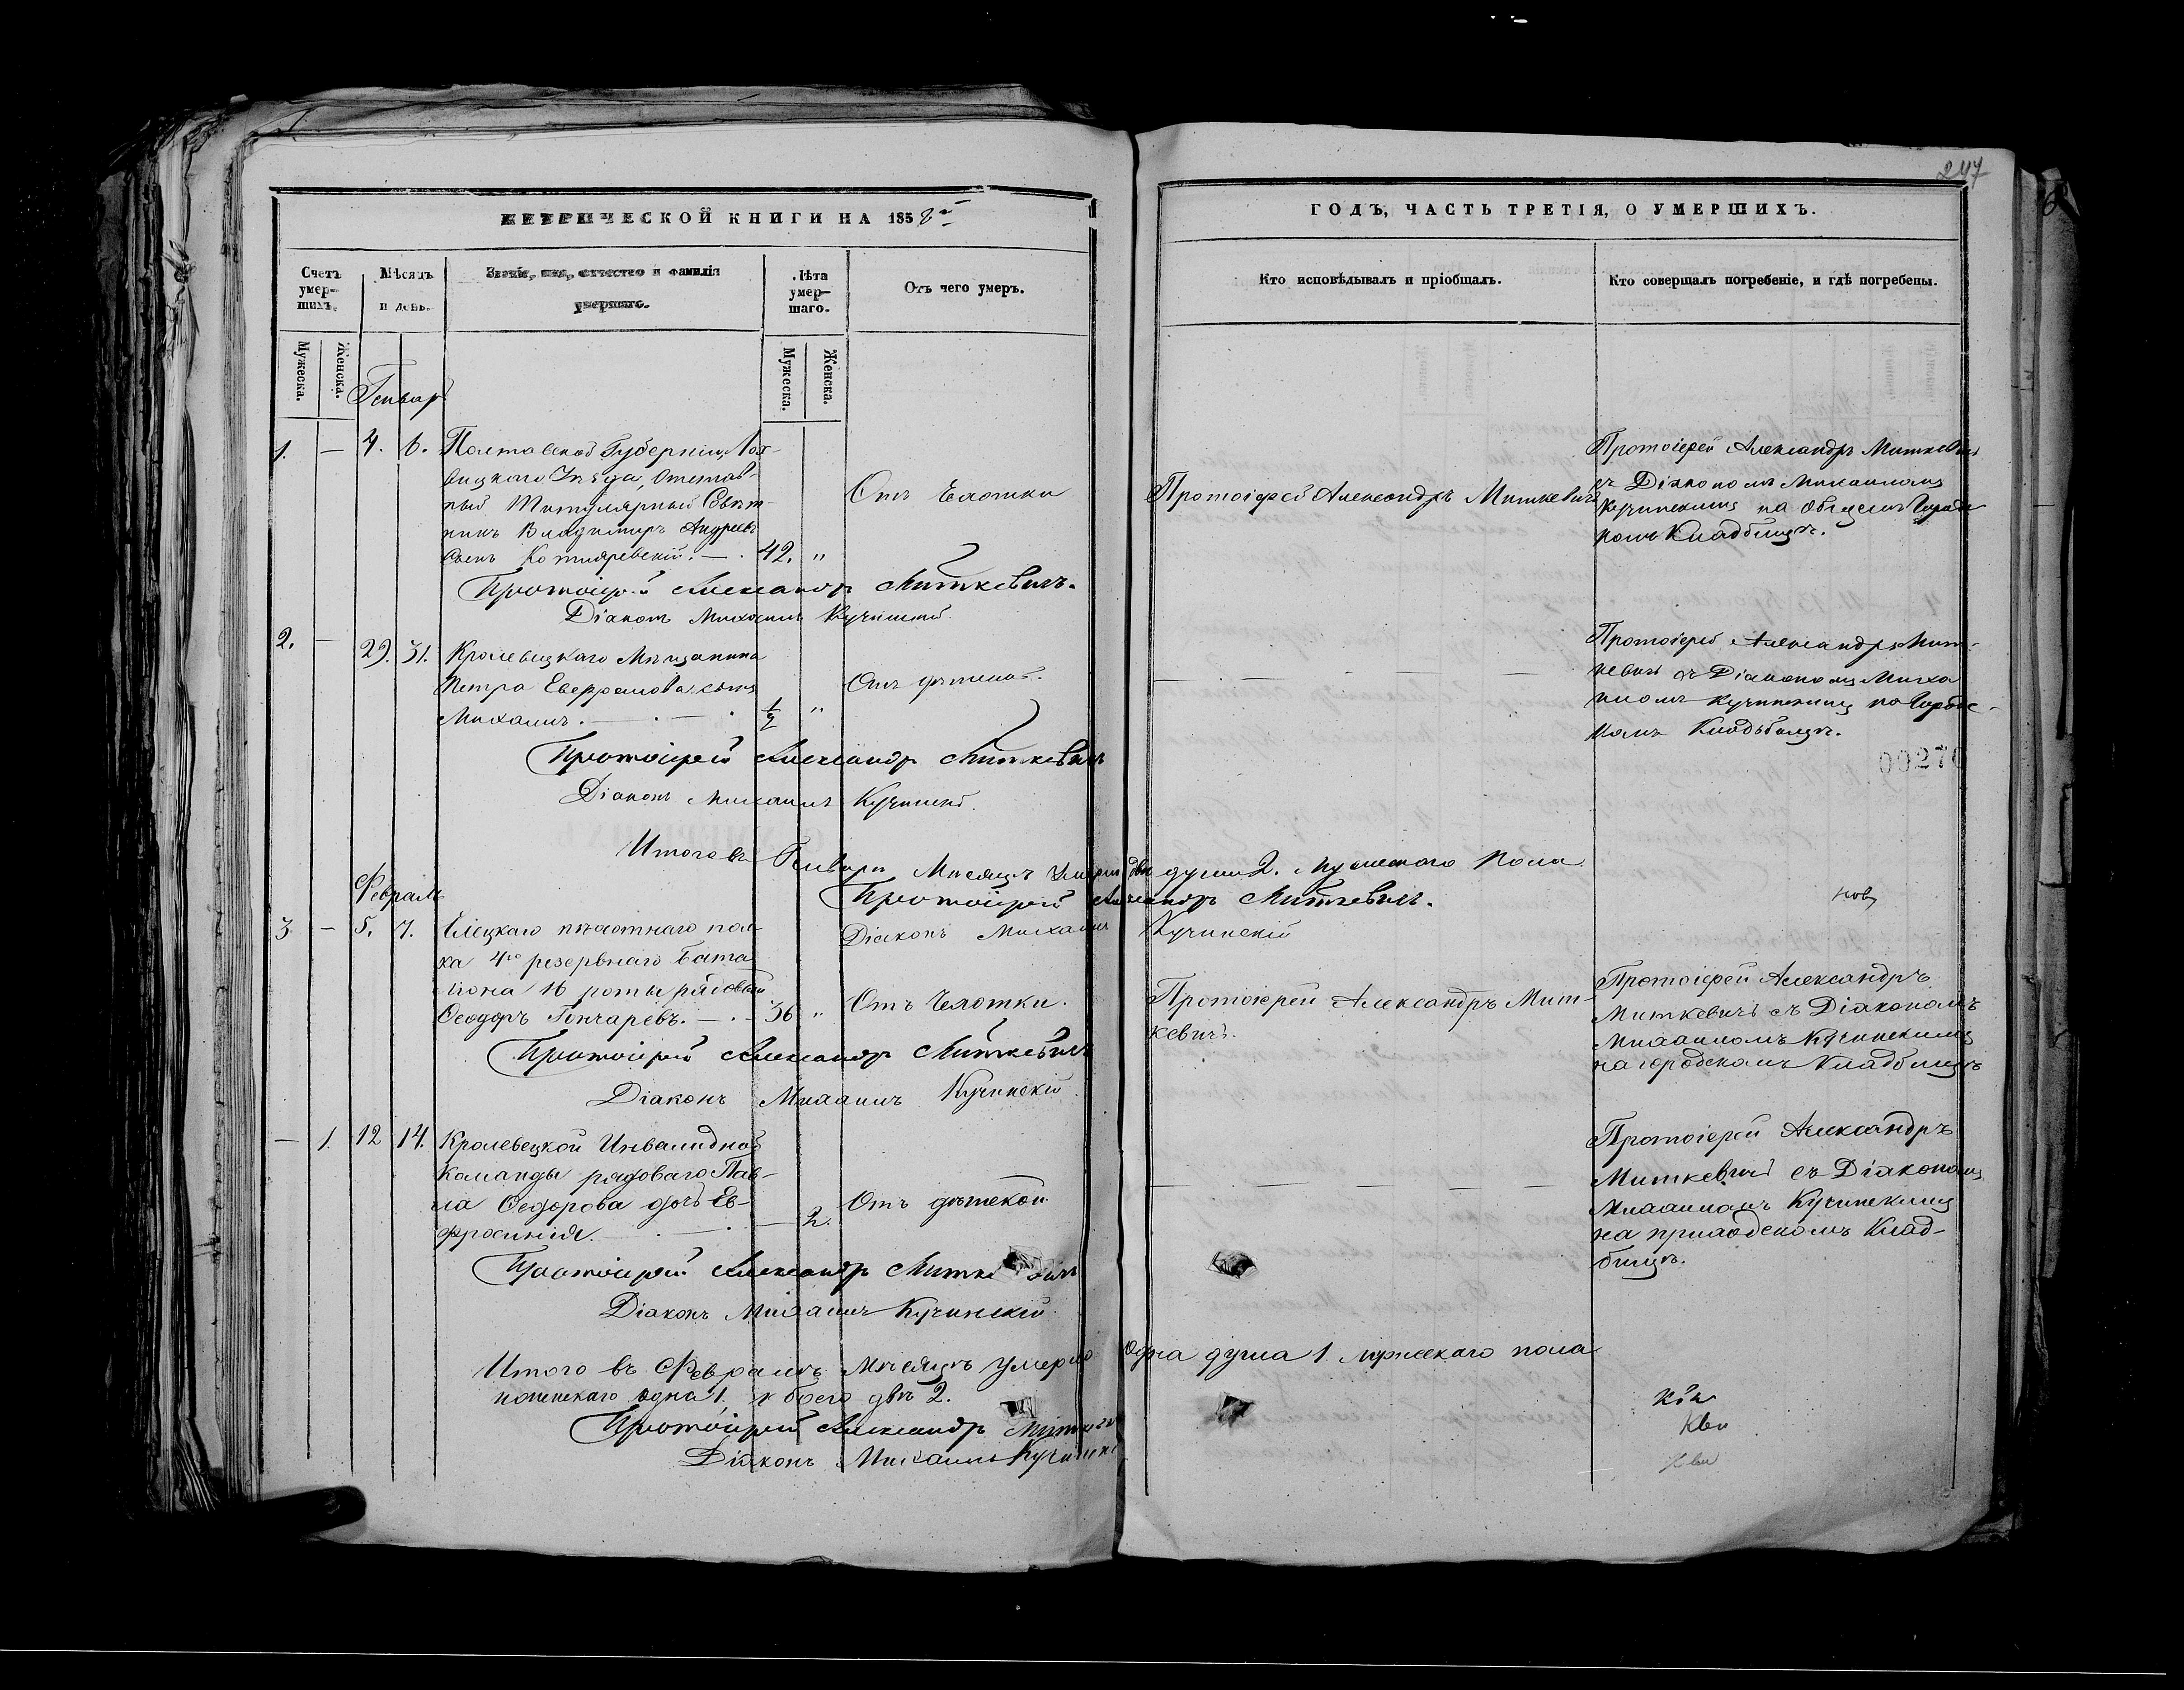 247
МЕТРИЧЕСКОЙ КНИГИ НА 1858й
ГОДЪ, ЧАСТЬ ТРЕТІЯ, О УМЕРШИХЪ.
Счетъ умер-шихъ.
Мѣсяцъ и день.
Званіе, имя, отчество и фамилія умершаго.
Лѣта умер-шаго.
Отъ чего умеръ.
Кто исповѣдывалъ и пріобщалъ.
Кто совершалъ погребеніе, и гдѣ погребены.
Мужеска.
Женска.
Мужеска.
Женска.
Генварь
1. — 4. 6. Полтавской Губерніи, Лох-
вицкаго Уѣзда, Отстав-
ный Титулярный Совѣт-
никъ Владимиръ Андреевъ
Сынъ Котляревскій. — . 42. "
Отъ Чахотки
Протоіерей Александръ Миткевичъ
Протоіерей Александръ Миткевичъ
съ Діакономъ Михаиломъ
Кучинскимъ на Общемъ Городс
комъ Кладбищѣ.
Протоіерей Александръ Миткевичъ.
Діаконъ Михаилъ Кучинскій.
2. — 29. 31. Кролевецкаго Мѣщанина
Петра Евфремова сынъ
Михаилъ. — . — . 1/2 "
Отъ дѣтской.
— — — — —
Протоіерей Александръ Мит-
кевичъ съ Діакономъ Миха
иломъ Кучинскимъ на Городс-
комъ Кладьбищѣ.
00270
Протоіерей Александръ Миткевичъ
Діаконъ Михаилъ Кучинскій.
Итого въ Генварѣ Мѣсяцѣ Умерло двѣ души 2. мужескаго пола
Протоіерей Александръ Миткевичъ.
Діаконъ Михаилъ Кучинскій
Февраль
3 — 5. 7. Елецкаго пѣхотнаго пол-
ка 4го резервнаго Бата
ліона 16 роты рядовый
Ѳеодоръ Гончаревъ. — . — 36 "
Отъ Чахотки.
Протоіерей Александръ Мит-
кевичъ.
Протоіерей Александръ
Миткевичъ съ Діакономъ
Михаиломъ Кучинскимъ
на городскомъ Кладбищѣ
Протоіерей Александръ Миткевичъ
Діаконъ Михаилъ Кучинскій
— 1. 12 14. Кролевецкой Инвалидной
Команды рядоваго Пав-
ла Ѳедорова дочь Ев-
фросинія. — . — 2.
Отъ дѣтской
— — — — —
Протоіерей Александръ
Миткевичъ съ Діакономъ
Михаиломъ Кучинскимъ
на приходскомъ Клад-
бищѣ.
Протоіерей Александръ Миткевичъ
Діаконъ Михаилъ Кучинскій.
Итого въ Февралѣ Мѣсяцѣ умерло Одна душа 1 мужескаго пола
женскаго одна 1. обоего двѣ 2.
Протоіерей Александръ Миткевич
Діаконъ Михаилъ Кучинскі